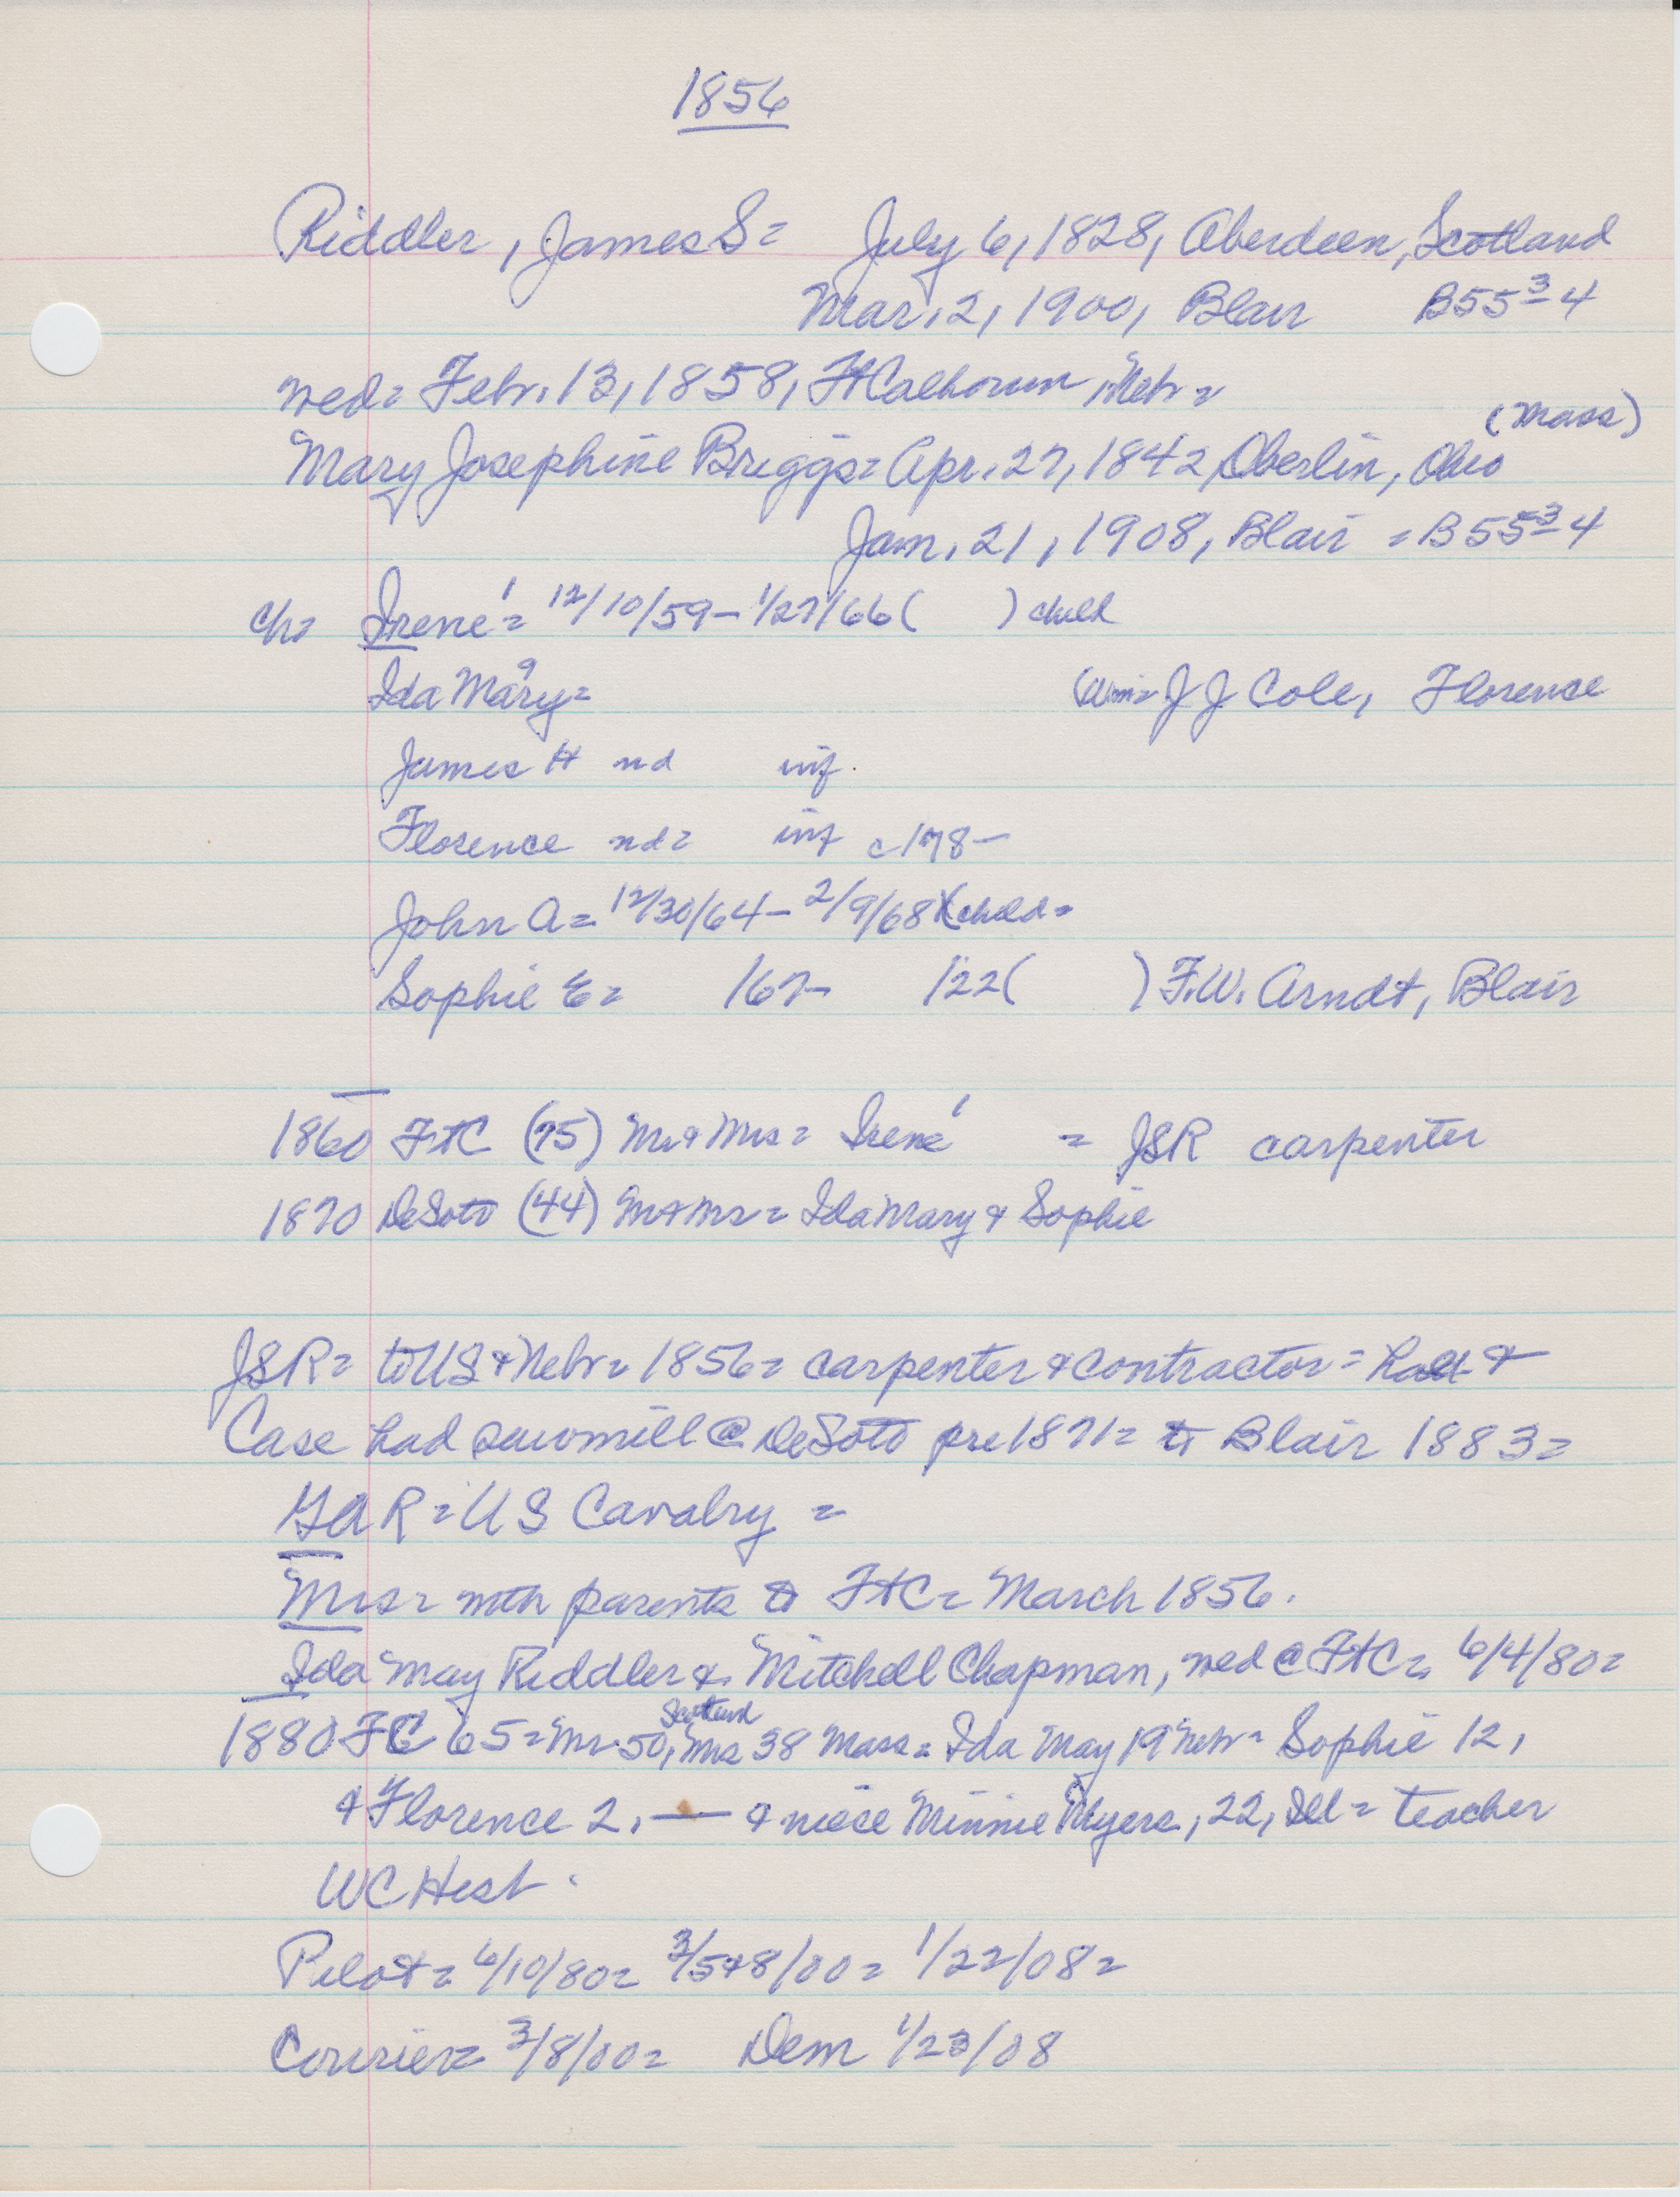 1856
Riddler, James S = July 6, 1828, Aberdeen, Scotland
Mar. 2, 1900, Blair B55 3-4
wed = Febr. 13, 1858, Ft Calhoun, Nebr =
(Mass)
Mary Josephine Briggs = Apr. 27, 1842, Oberlin, Ohio
Jan. 21, 1908, Blair = B55 3-4
ch = Irene 1 = 12/10/59 - 1/27/66 ( ) child
Ida Mary 9 = J J Cole, Florence
James H nd inf.
Florence nd = inf c 178-
John A = 12/30/64 - 2/9/68 (child =
Sophie E = 167- 122 ( ) F.W. Arndt, Blair
1860 FtC (75) Mr & Mrs = Irene 1 = JSR carpenter
1870 DeSoto (44) Mr & Mrs = Ida Mary & Sophie
JSR = to US & Nebr = 1856 = carpenter & contractor = &
Case had sawmill @ DeSoto pre 1871 = to Blair 1883 =
GAR = US Cavalry =
Mrs = with parents to FtC = March 1856.
Ida May Riddler & Mitchell Chapman, wed @ FtC = 6/4/80 =
Scotland
1880 FC 65 = Mr 50, Mrs 38 Mass = Ida May 19 Nebr = Sophie 12,
& Florence 2, — & niece Minnie Myers, 22, Ill = teacher
WC Hist.
Pilot = 6/10/80 = 3/5&8/00 = 1/22/08 =
Courier = 3/8/00 = Dem 1/23/08